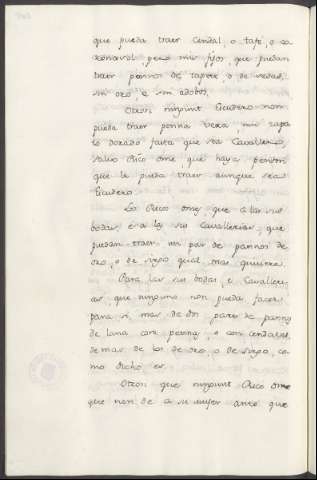 que pueda traer Cendal, o tafe, o ca
pero mis fijos que puedan
traer pannos de tapete, o de sedas,
sin oro, e sin adobos.
Otrosi ningunt Escudero non
pueda traer penna vera, nin zapa
to dorado fasta que sea Cavallero,
salvo Rico ome que haya pendon
que lo pueda traer aunque sea
Escudero.
Et Rico ome, que a las sus
bodas, o a las sus Cavallerias, que
puedan traer un par de pannos de
oro, o de sirgo qual mas quisiere.
Para las sus bodas, e Cavalleri-
as, que ninguno non pueda facer
para si mas de dos pares de pannos
de lana con penna, o con cendales,
demas de los de oro, o de sirgo, co
mo dicho es.
Otrosi que ningunt Rico ome
que non de a su mujer antes que